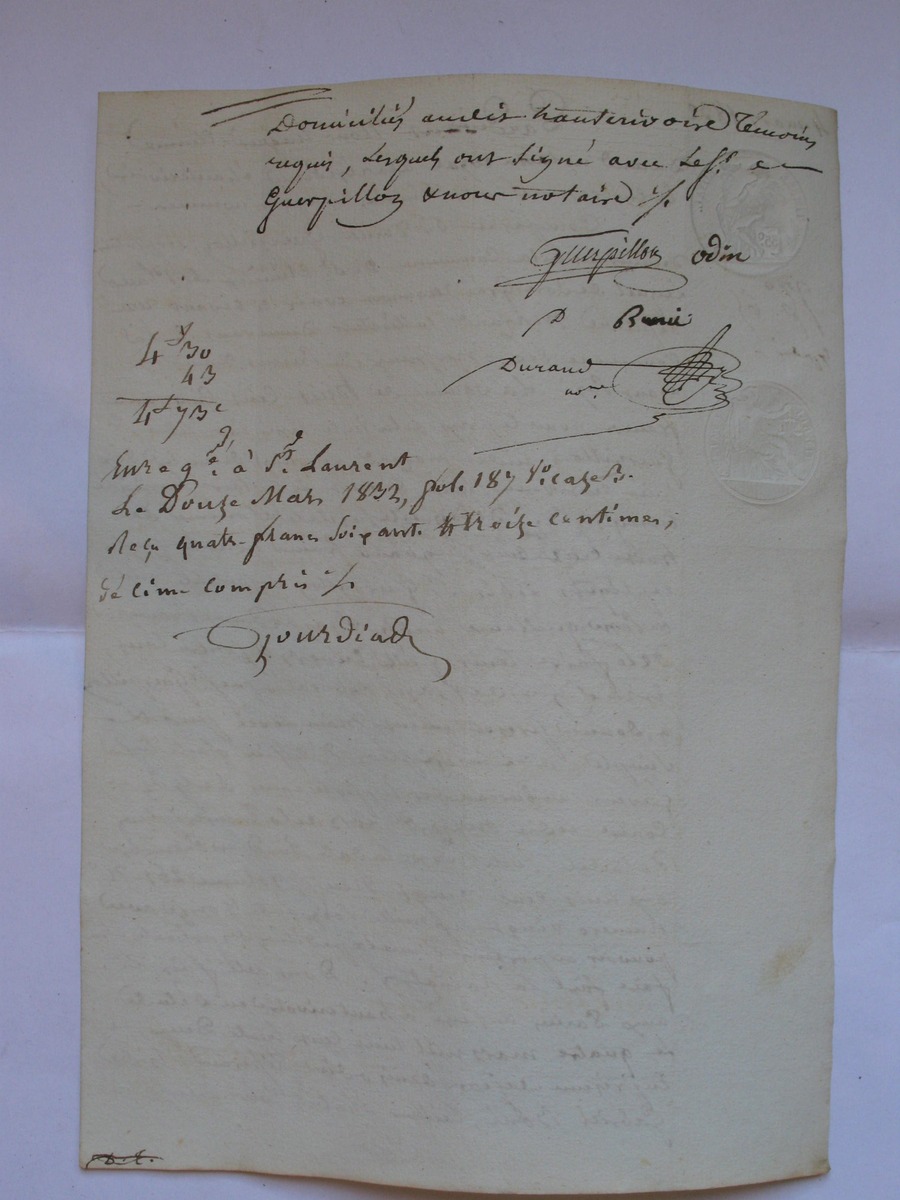 Domiciliés audit hauterivoire Temoins
requis, lesquels ont signé avec le Sr.
Guerpillon & nous notaire ./.
Guerpillon odin
D
Durand
nore
4f 30
43
4f 73c
Enregé. à St. Laurent
Le Douze Mars 1832, fol. 187 Vo. case 3.
Reçu quatre francs soixante & treize centimes,
décime compris ./.
Gourdiat
D.E.